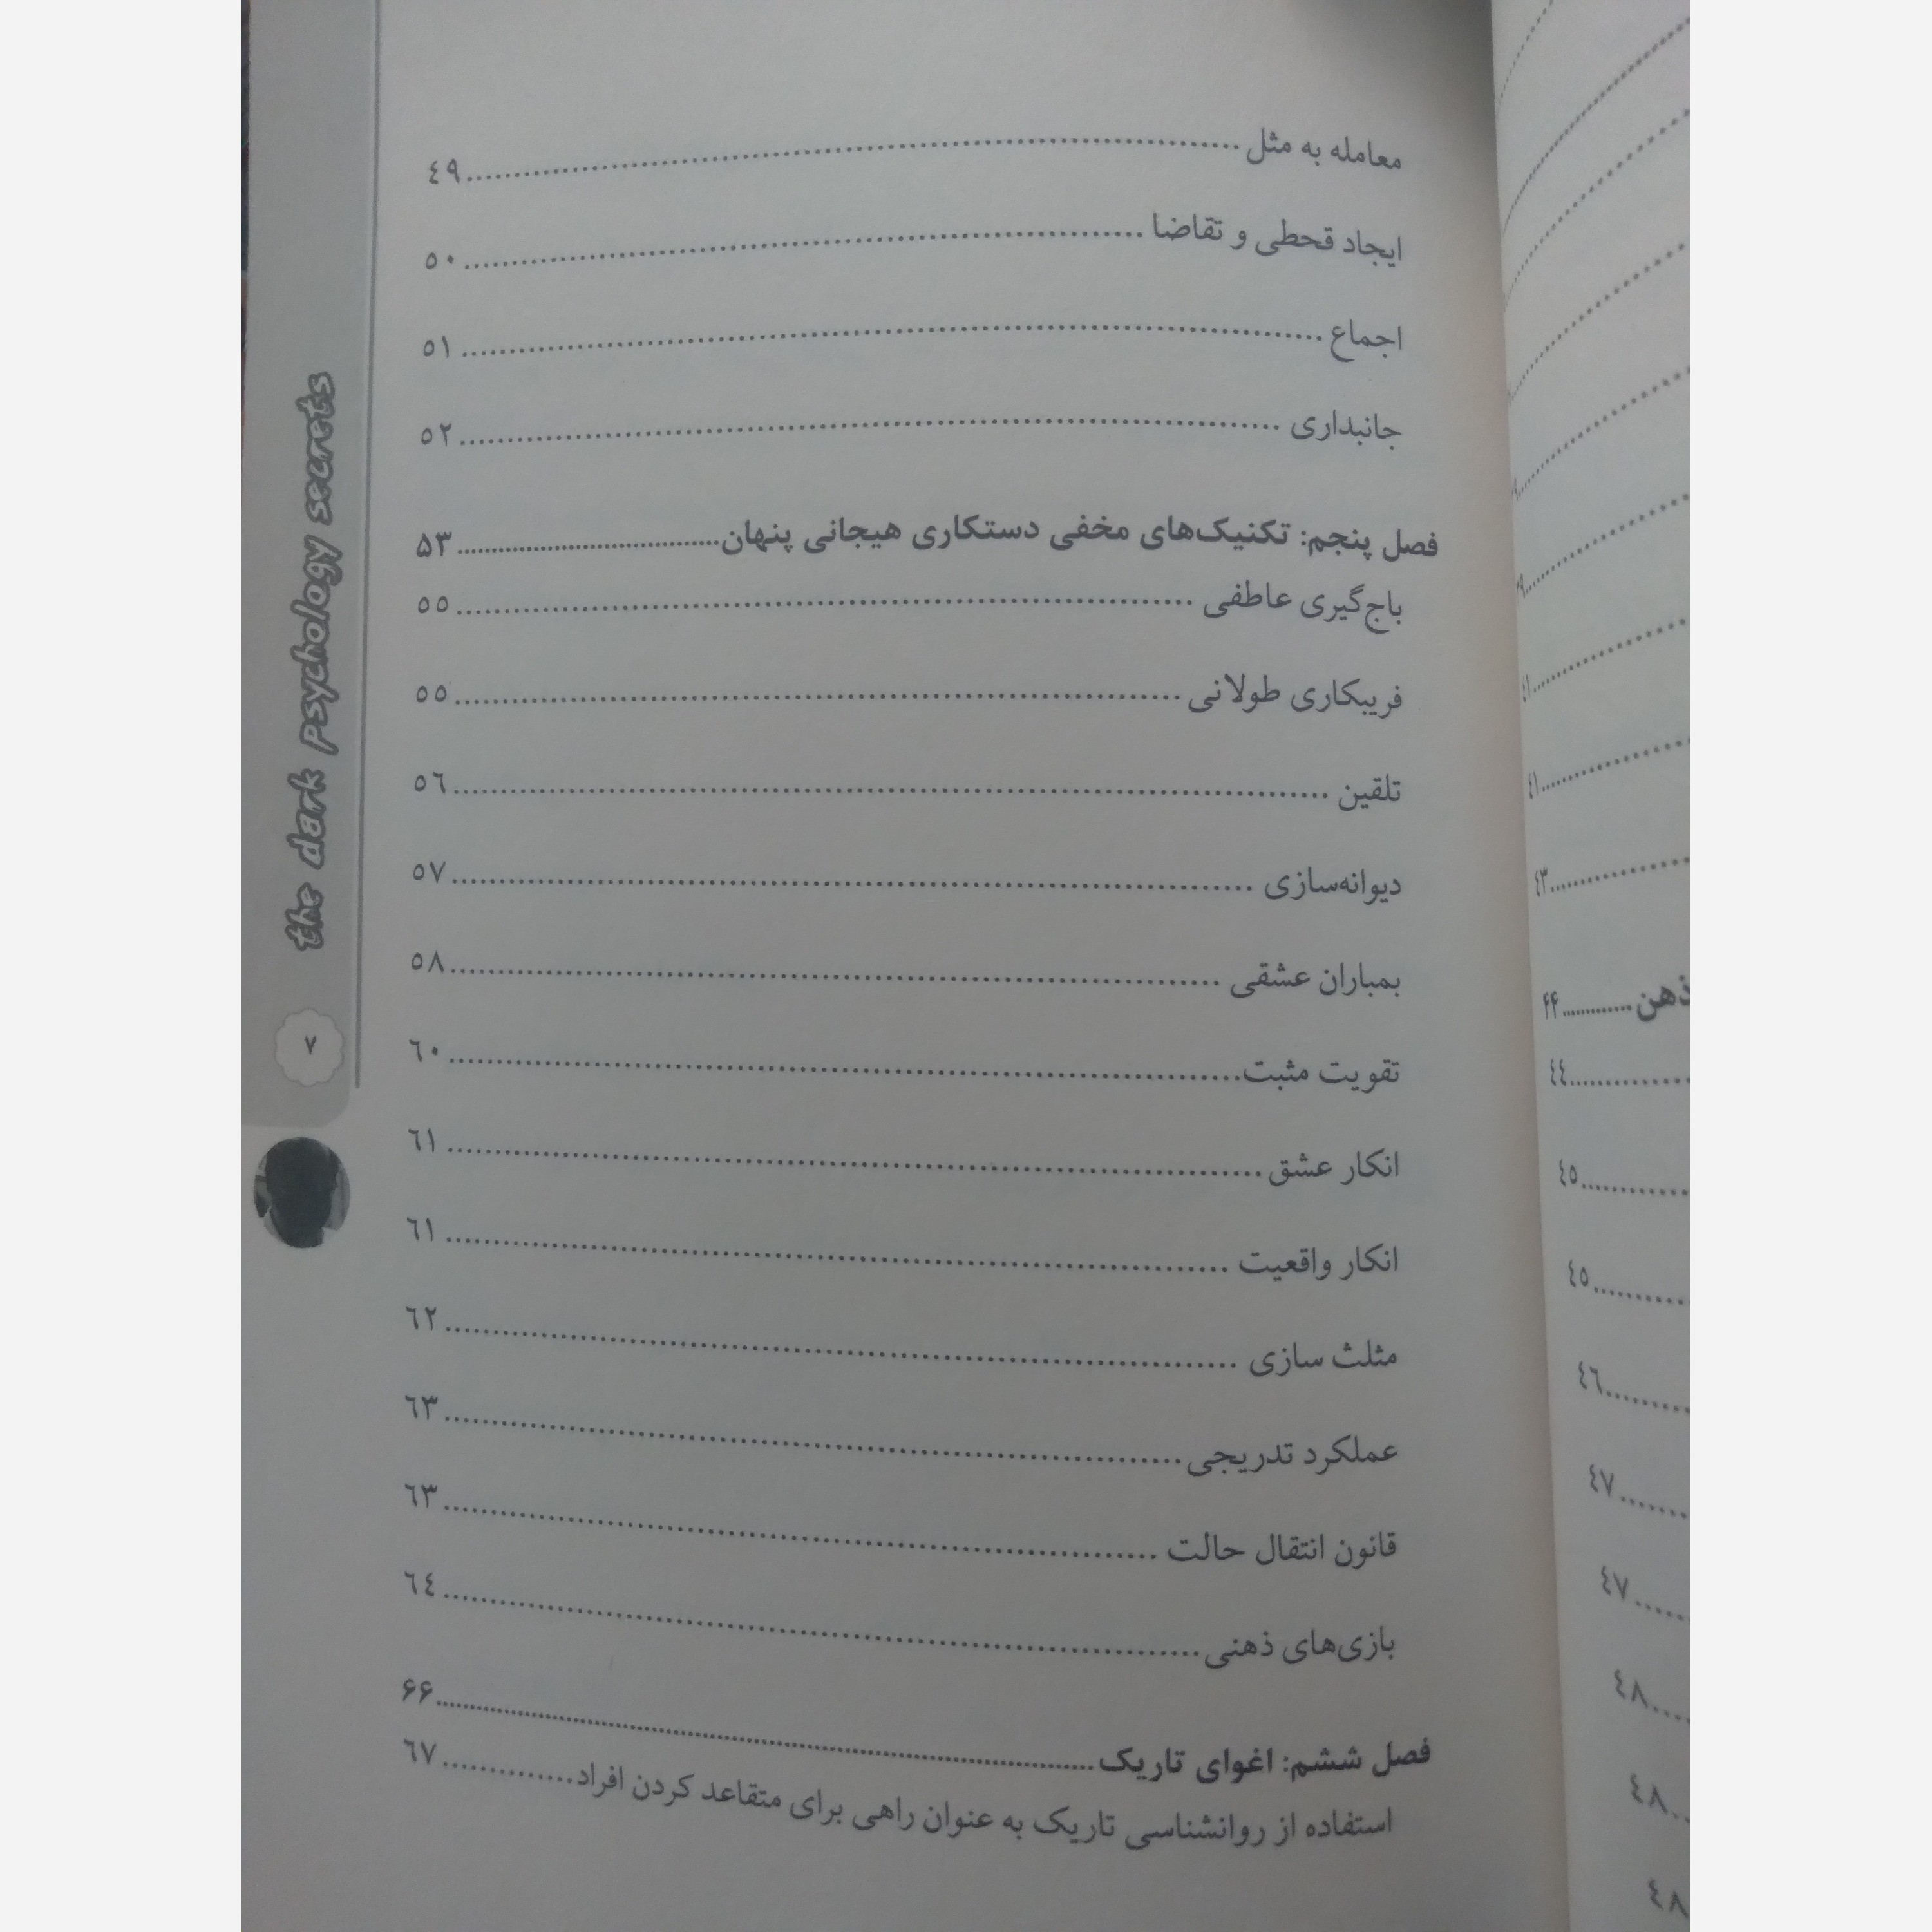 معامله به مثل ........ ٤٩
ایجاد قحطی و تقاضا ........ ٥٠
اجماع ........ ٥١
جانبداری ........ ٥٢
فصل پنجم: تکنیک‌های مخفی دستکاری هیجانی پنهان ........ ۵۳
باج‌گیری عاطفی ........ ٥٥
فریبکاری طولانی ........ ٥٥
تلقین ........ ٥٦
دیوانه‌سازی ........ ٥٧
بمباران عشقی ........ ٥٨
تقویت مثبت ........ ٦٠
انکار عشق ........ ٦١
انکار واقعیت ........ ٦١
مثلث سازی ........ ٦٢
عملکرد تدریجی ........ ٦٣
قانون انتقال حالت ........ ٦٣
بازی‌های ذهنی ........ ٦٤
فصل ششم: اغوای تاریک ........ ۶۶
استفاده از روانشناسی تاریک به عنوان راهی برای متقاعد کردن افراد ........ ٦٧
the dark psychology secrets
٧
٤١
٤١
٤٣
ذهن ........ ۴۴
٤٤
٤٥
٤٥
٤٦
٤٧
٤٧
٤٨
٤٨
٤٨